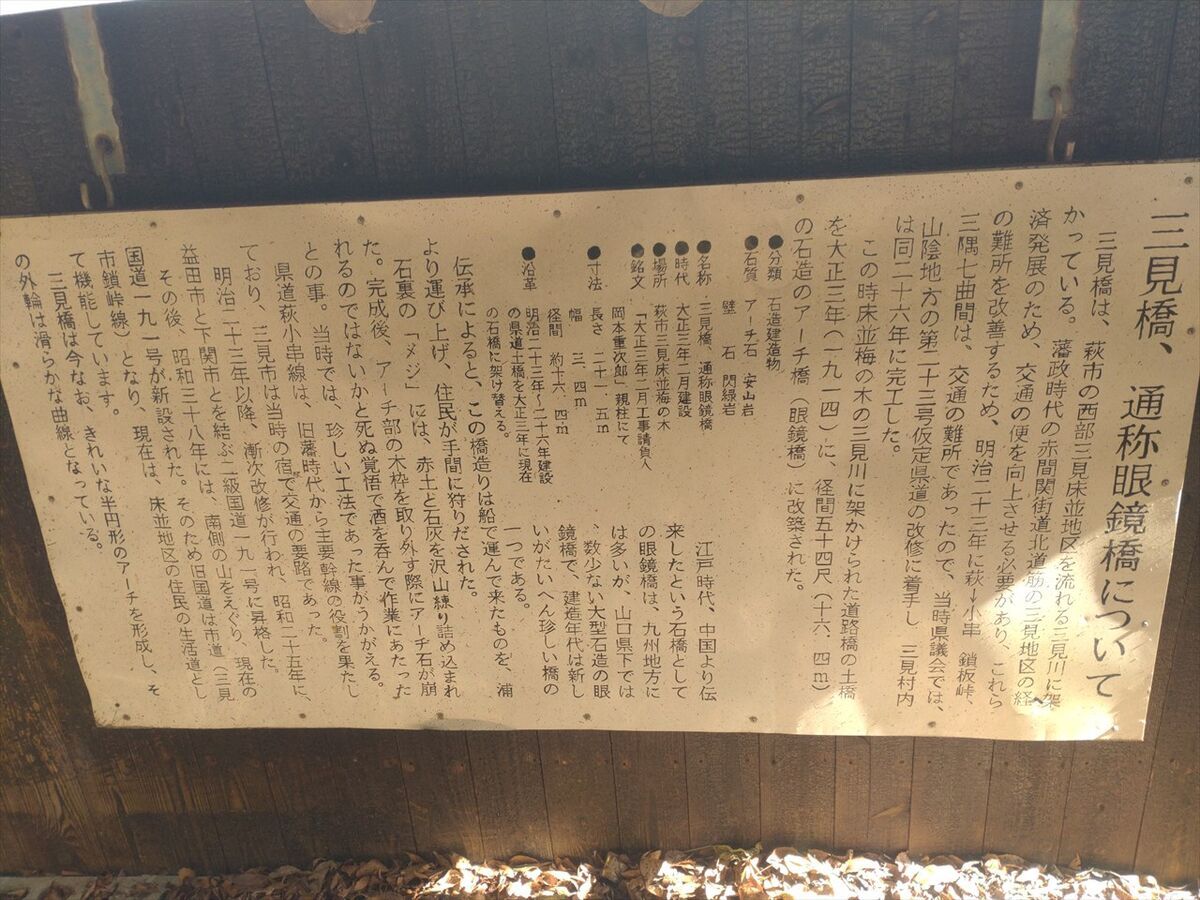 三見橋、通称眼鏡橋について
三見橋は、萩市の西部三見床並地区を流れる三見川に架
かっている。藩政時代の赤間関街道北道筋の三見地区の経
済発展のため、交通の便を向上させる必要があり、これら
の難所を改善するため、明治二十三年に萩→小串 鎖板峠、
三隅七曲間は、交通の難所であったので、当時県議会では、
山陰地方の第二十三号仮定県道の改修に着手し 三見村内
は同二十六年に完工した。
この時床並梅の木の三見川に架かけられた道路橋の土橋
を大正三年(一九一四)に、径間五十四尺(十六、四m)
の石造のアーチ橋(眼鏡橋)に改築された。
●分類 石造建造物
●石質 アーチ石 安山岩
壁 石 閃緑岩
●名称 三見橋、通称眼鏡橋
●時代 大正三年二月建設
●場所 萩市三見床並梅の木
●銘文 「大正三年二月工事請負人
岡本重次郎」親柱にて
●寸法 長さ 二十一、五m
幅 三、四m
径間 約十六、四m
●沿革 明治二十三年~二十六年建設
の県道土橋を大正三年に現在
の石橋に架け替える。
江戸時代、中国より伝
来したという石橋として
の眼鏡橋は、九州地方に
は多いが、山口県下では
、数少ない大型石造の眼
鏡橋で、建造年代は新し
いがたいへん珍しい橋の
一つである。
伝承によると、この橋造りは船で運んで来たものを、浦
より運び上げ、住民が手間に狩りだされた。
石裏の「メジ」には、赤土と石灰を沢山練り詰め込まれ
た。完成後、アーチ部の木枠を取り外す際にアーチ石が崩
れるのではないかと死ぬ覚悟で酒を呑んで作業にあたった
との事。当時では、珍しい工法であった事がうかがえる。
県道萩小串線は、旧藩時代から主要幹線の役割を果たし
ており、三見市は当時の宿で交通の要路であった。
明治二十三年以降、漸次改修が行われ、昭和二十五年に
益田市と下関市とを結ぶ二級国道一九一号に昇格した。
その後、昭和三十八年には、南側の山をえぐり、現在の
国道一九一号が新設された。そのため旧国道は市道(三見
市鎖峠線)となり、現在は、床並地区の住民の生活道とし
て機能しています。
三見橋は今なお、きれいな半円形のアーチを形成し、そ
の外輪は滑らかな曲線となっている。